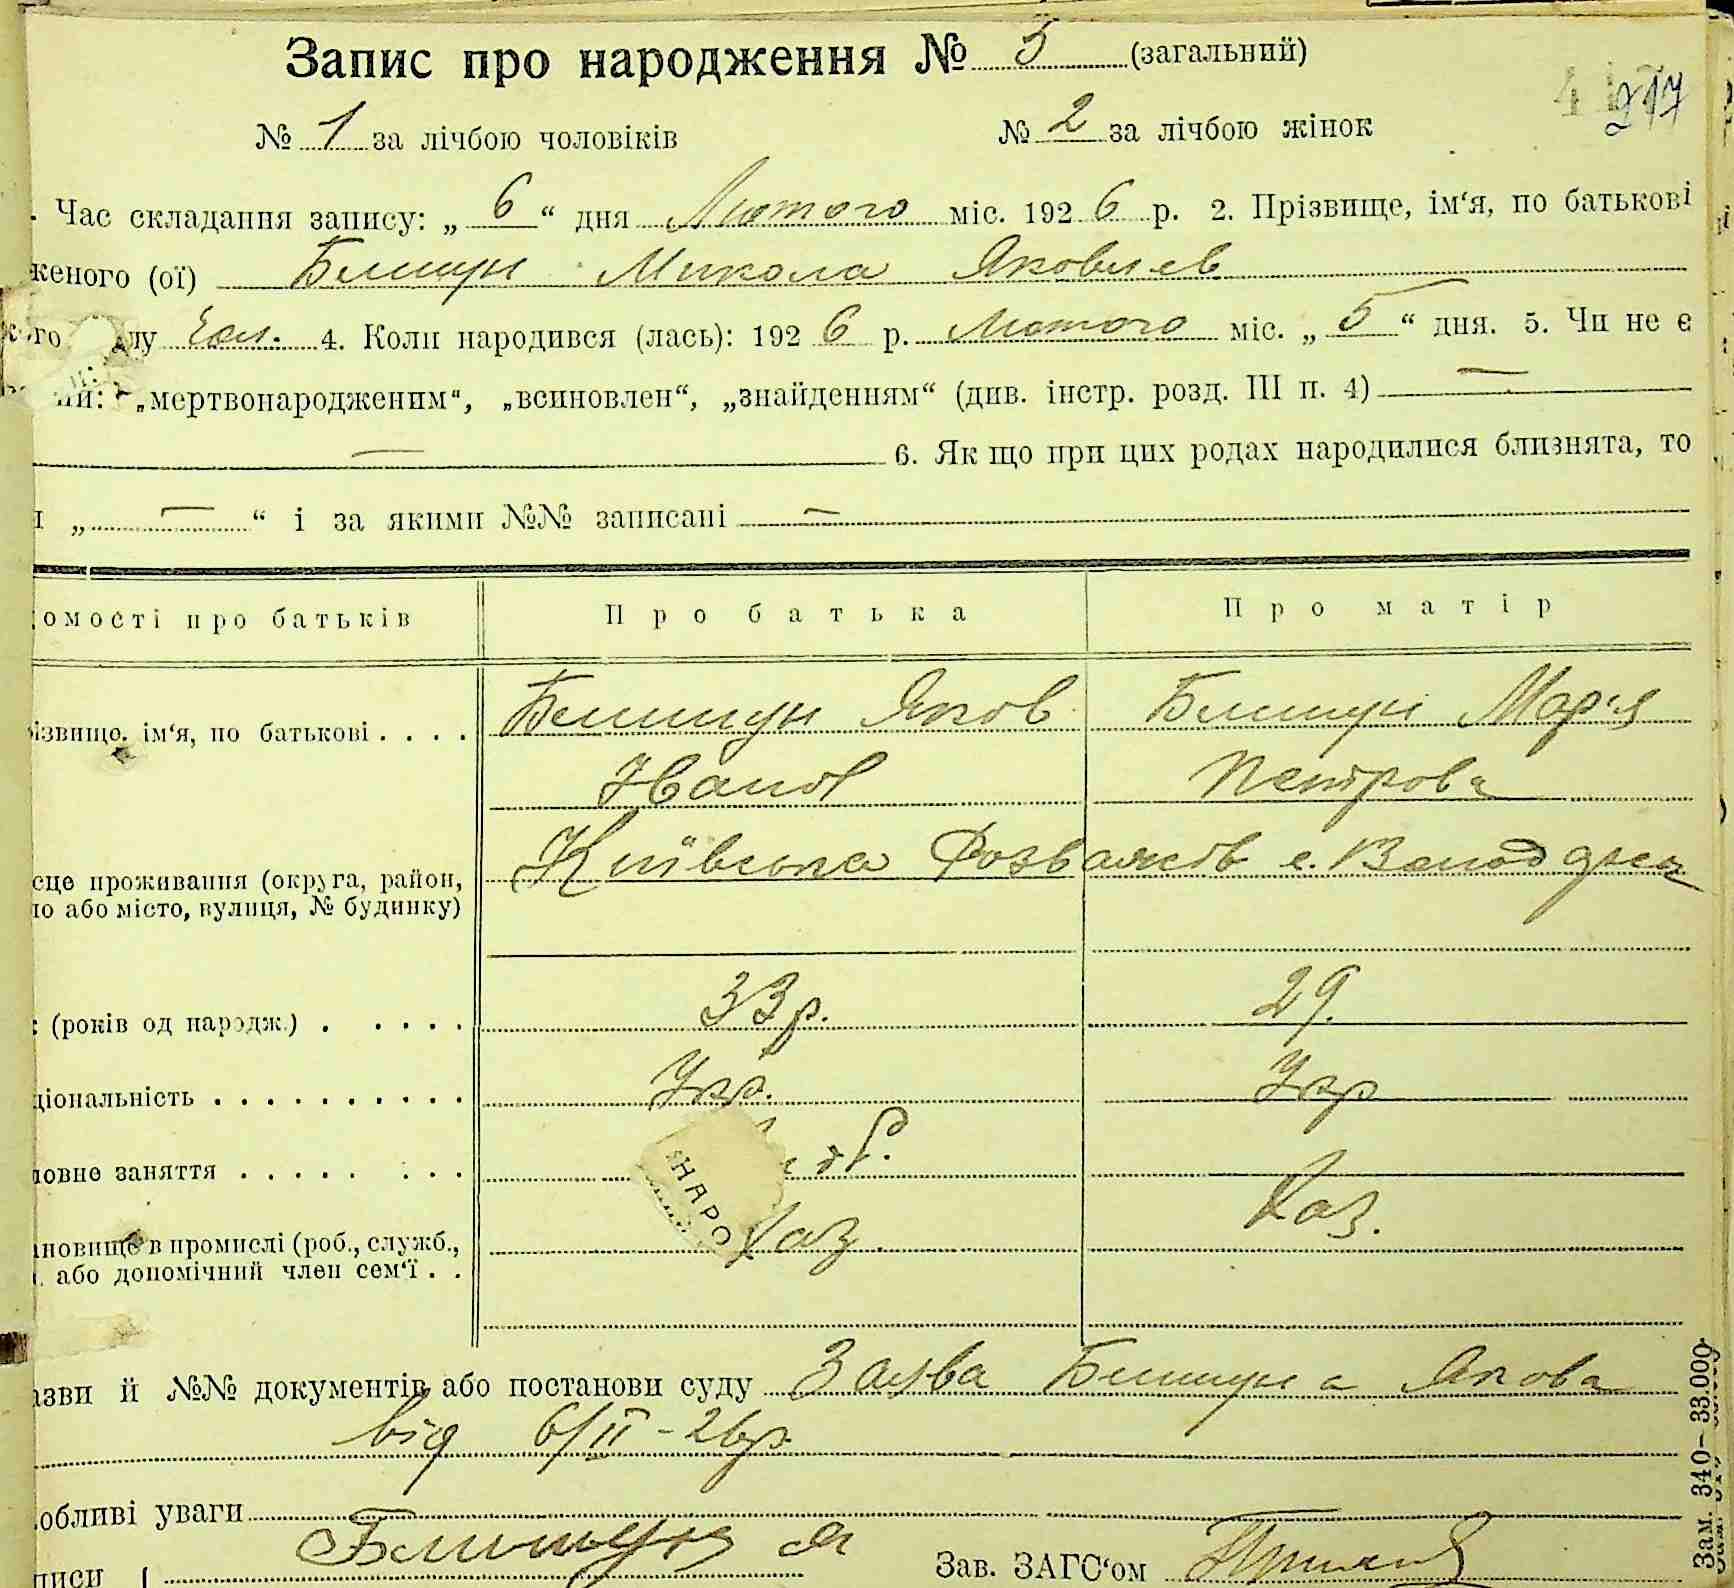 Запис про народження № 3 (загальний)
№ 1 за лічбою чоловіків № 2 за лічбою жінок
217
Час складання запису: „ 6 “ дня Лютого міс. 192 6 р. 2. Прізвище, ім‘я, по батькові
женого (ої) Микола Яковлев
чол. 4. Коли народився (лась): 192 6 р. Лютого міс. „ 5 “ дня. 5. Чи не є
ий: „мертвонародженим“, „всиновлен“, „знайденням“ (див. інстр. розд. III п. 4) —
— 6. Як що при цих родах народилися близнята, то
„ — “ і за якими №№ записані —
омості про батьків Про батька Про матір
ізвище, ім‘я, по батькові . . . . Яков Мар‘я
Іванов Петрова
Київська Розважев с.
сце проживання (округа, район,
ло або місто, вулиця, № будинку)
(років од народж.) . . . . . 33 р. 29.
ціональність . . . . . . . . . . Укр. Укр
НАРО
ловне заняття . . . . . . . .
ановище в промислі (роб., служб., Хаз Хаз.
або допомічний член сем‘ї . .
азви й №№ документів або постанови суду Заява Якова
від 6/II – 26 р.
обливі уваги
писи Зав. ЗАГС‘ом
Зам. 340–33.000